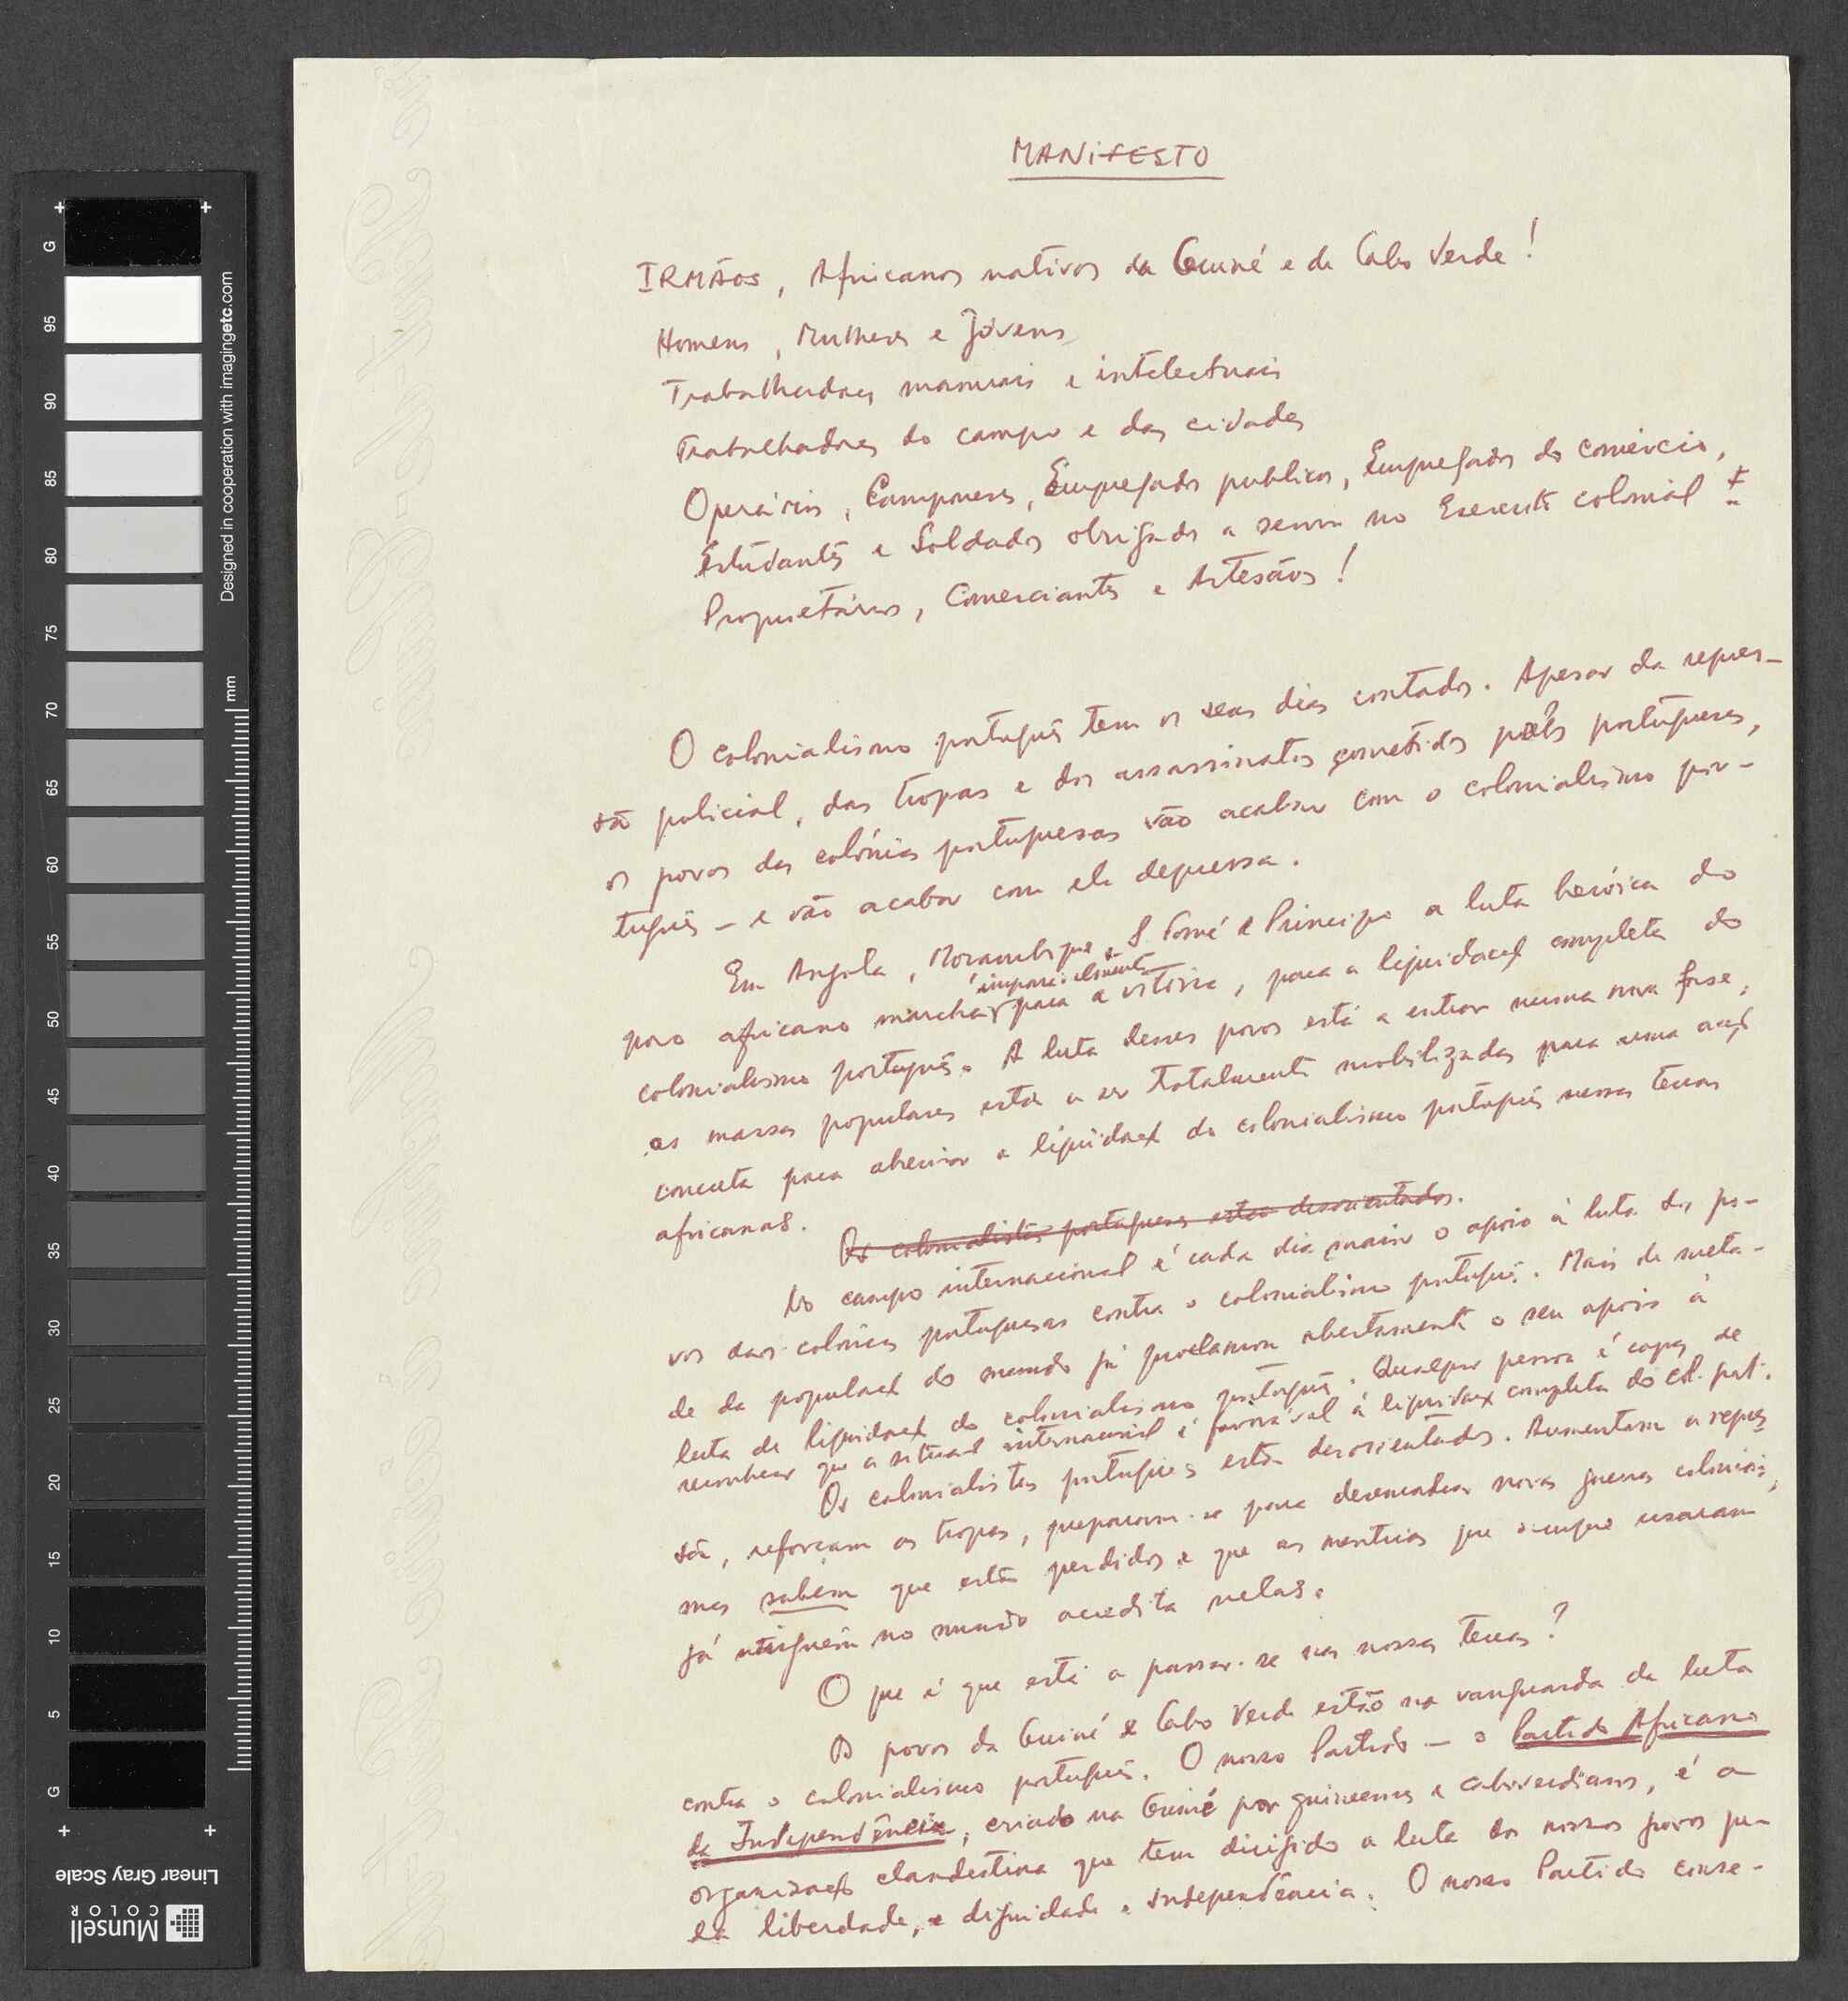 MANIFESTO
IRMÃOS, Africanos nativos da Guiné e de Cabo Verde!
Homens, Mulheres e Jóvens,
Trabalhadores manuais e intelectuais
Trabalhadores do campo e das cidades
Operários, Camponeses, Empregados publicos, Empregados do comércio,
Estudantes e Soldados obrigados a servir no Exercito colonial!
Proprietários, Comerciantes e Artesãos!
O colonialismo português tem os seus dias contados. Apesar da repres-
são policial, das tropas e dos assassinatos cometidos pelos portugueses,
os povos das colónias portuguesas vão acabar com o colonialismo por-
tuguês - e vão acabar com ele depressa.
Em Angola, Mozambique e S. Tomé e Principe a luta heróica do
povo africano marcha para a vitória, para a liquidação completa do
colonialismo português. A luta desses povos está a entrar numa nova fase,
as massas populares estão a ser totalmente mobilizadas para uma acção
concreta para a liquidação do colonialismo português nessas terras
africanas.
Os colonialistas portugueses estão desorientados.
No campo internacional é cada dia maior o apoio à luta dos po-
vos das colónias portuguesas contra o colonialismo português. Mais de meta-
de da população do mundo já proclamou abertamente o seu apoio à
luta de liquidação do colonialismo português. Qualquer pessoa é capaz de
reconhecer que a situação internacional é favorável à liquidação completa do col. port.
Os colonialistas portugueses estão desorientados. Aumentam a repres
são, reforçam as tropas, preparam-se para desencadear novas guerras coloniais,
mas sabem que estão perdidos e que as mentiras que sempre usaram
já ninguém no mundo acredita nelas.
O que é que está a passar-se nas nossas terras?
Os povos da Guiné e Cabo Verde estão na vanguarda da luta
contra o colonialismo português. O nosso Partido - o Partido Africano
da Independência, criado na Guiné por guineenses e caboverdianos, é a
organização clandestina que tem dirigido a luta dos nossos povos pe-
la liberdade, a dignidade e independência. O nosso Partido conse-
Designed in cooperation with imagingetc.com
mm
G
95
90
85
80
75
70
65
60
55
50
45
40
35
30
25
20
15
10
5
G
Linear Gray Scale
Munsell
COLOR